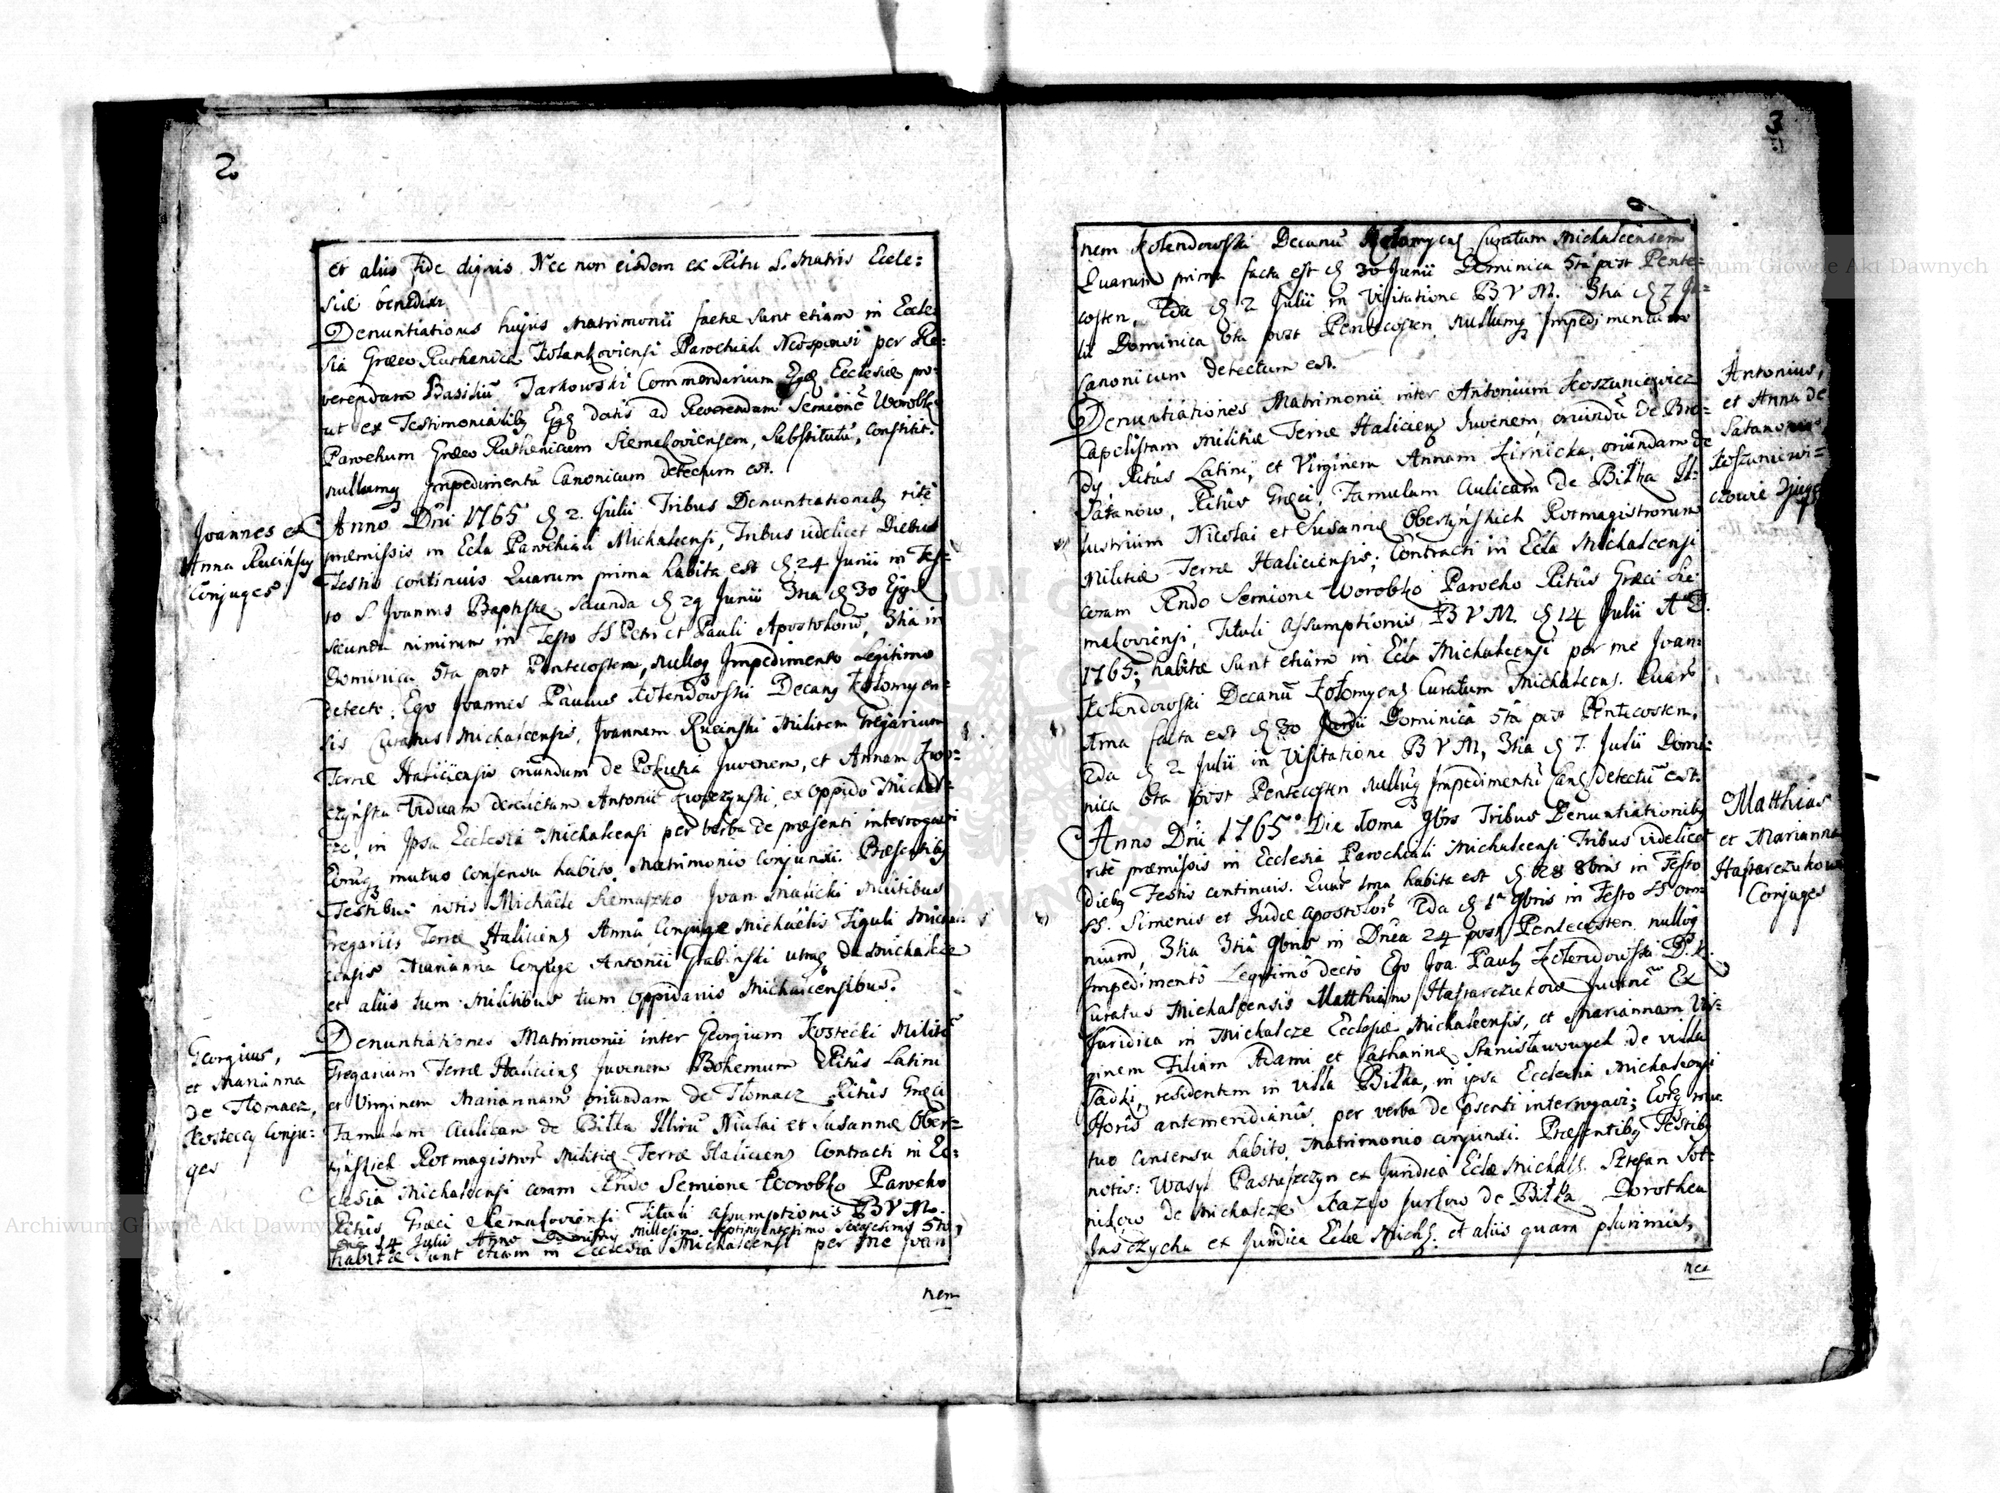 2.
et aliis fide dignis. Nec non eisdem ex Ritu S. Matris Eccle:
siæ benedixi
Denuntiationes hujus Matrimonii factæ sunt etiam in Eccle:
sia Græco Ruthenica Parochiali per Re:
verendum Basilium Tarkowski Commendarium Ecclesiæ pro:
ut ex Testimonialibg datis ad Reverendum Semionē Worobko
Parochum Græco Ruthenicum Siemakoviensem, Substitutū, constitit.
nullumq Impedimentū Canonicum detectum est.
Joannes et
Anna Ruciński
Conjuges
Anno Dni 1765 2. Julii Tribus Denuntiationibg ritè
præmissis in Ecla Parochiali Michalcensi, Tribus videlicet Diebus
Festis continuis Quarum prima habita est 24 Junii in Fes:
to S. Joannis Baptistæ, secunda 29 Junii 3tia 30
secunda nimirum in Festo SS Petri et Pauli Apostolorū, 3tia in
Dominica 5ta post Pentecosten, nulloq Impedimento Legitimo
detecto. Ego Joannes Paulus Kolendowski Decang Kołomyen:
sis Curatus Michalcensis, Joannem Ruciński Militem Gregarium
Terræ Haliciensis oriundum de Pokucia Juvenem, et Annam
Viduam derelictam Antonii ex oppido Michal:
cze, in Ipsa Ecclesia Michalcensi per verba de præsenti interrogavi
Eorūq mutuo consensu habito, Matrimonio conjunxi. Præsentibg
Testibus notis Michaële Siemaszko Joan Malicki Militibus
Gregariis Terræ Haliciens Anna Conjuge Michaëlis Figuli Michal:
censis Marianna Conjuge Antonii Grabinski utraq de Michalcze
et aliis tum Militibus tum Oppidanis Michalcensibus.
Georgius,
et Marianna
de Tłomacz,
Kosteccy Conju:
ges
Denuntiationes Matrimonii inter Georgium Kostecki Militē
Gregarium Terræ Haliciens Juvenem Bohemum Ritûs Latini
et Virginem Mariannam oriundam de Tłomacz Ritûs Græci
Famulam Aulicam de Biłka Illriū Nicolai et Susannæ Ober:
tyńskich Rotmagistror Militiæ Terræ Haliciens Contracti in Ec:
clesia Michalcensi coram Rndo Semione Worobko Parocho
Ritûs Græci Siemakoviensi Tituli Assumptionis B V M.
Die 14 Julii Anno Domini Millesimo Septingentesimo Sexagesimo 5to,
habitæ sunt etiam in Ecclesia Michalcensi per me Joan
nem
3
nem Kolendowski Decanū Kołomycens Curatum Michalcensem
Quarum prima facta est 30 Junii Dominica 5tâ post Pente:
costen, 2da 2 Julii in Visitatione B V M. 3tia 7 Ju:
lii Dominica 6ta post Pentecosten nullumq Impedimentum
Canonicum detectum est.
Antonius,
et Anna de
Satanow
Koszuniewi:
czowie Conjuges
Denuntiationes Matrimonii inter Antonium Koszuniewicz
Capelistam Militiæ Terræ Haliciens Juvenem, oriundū de Bro:
dy Ritûs Latini, et Virginem Annam Zirnicka, oriundam de
Satanow, Ritûs Græci, Famulam Aulicam de Biłka Il:
lustrium Nicolai et Susannæ Obertyńskich Rotmagistrorum
Militiæ Terræ Haliciensis; Contracti in Ecla Michalcensi
coram Rndo Semione Worobko Parocho Ritûs Græci Sie:
makoviensi, Tituli Assumptionis B V M. 14 Julii A D.
1765; habitæ sunt etiam in Ecla Michalcensi per me Joan:
Kolendowski Decanū Kołomyens Curatum Michalcens. Quar
1ma facta est 30 Junii Dominicâ 5tâ post Pentecosten,
2da 2 Julii in Visitatione B V M, 3tia 7. Julii Domi:
nica 6ta post Pentecosten nullūq Impedimentū Canc detectū est.
Matthias
et Marianna
Hastarczukowie
Conjuges
Anno Dni 1765. Die 10ma 9bris Tribus Denuntiationibg
ritè præmissis in Ecclesia Parochiali Michalcensi Tribus videlicet
diebg Festis continuis. Quar 1ma habita est 28 8bris in Festo
SS. Simonis et Judæ Apostolor 2da 1a 9bris in Festo SS om:
nium, 3tia 3tiâ 9bris in Dnica 24 post Pentecosten nulloq
Impedimentô Legitimô detctô Ego Joa. Paulg Kolendowski D. K.
Curatus Michalcensis Matthiam Hastarczukow Juvenē Ex
Juridica in Michalcze Ecclesiæ Michalcensis, et Mariannam Vir:
ginem Filiam Adami et Catharinæ Stanisławowych de villa
Sadki, residentem in villa Biłka, in ipsa Ecclesia Michalcensi
Horis antemeridianis, per verba de psenti interrogavi; Eorūq mu:
tuo consensu habito, Matrimonio conjunxi. Præsentibg Testibg
notis: Wasyl Pastuszczyn ex Juridica Eclæ Michalc. Sztefan Sot:
nikow de Michalcze Fazio Jurkow de Biłka Dorothea
Jasczycha ex Juridica Eclæ Michc. et aliis quam plurimis,
nec
Archiwum Główne Akt Dawnych